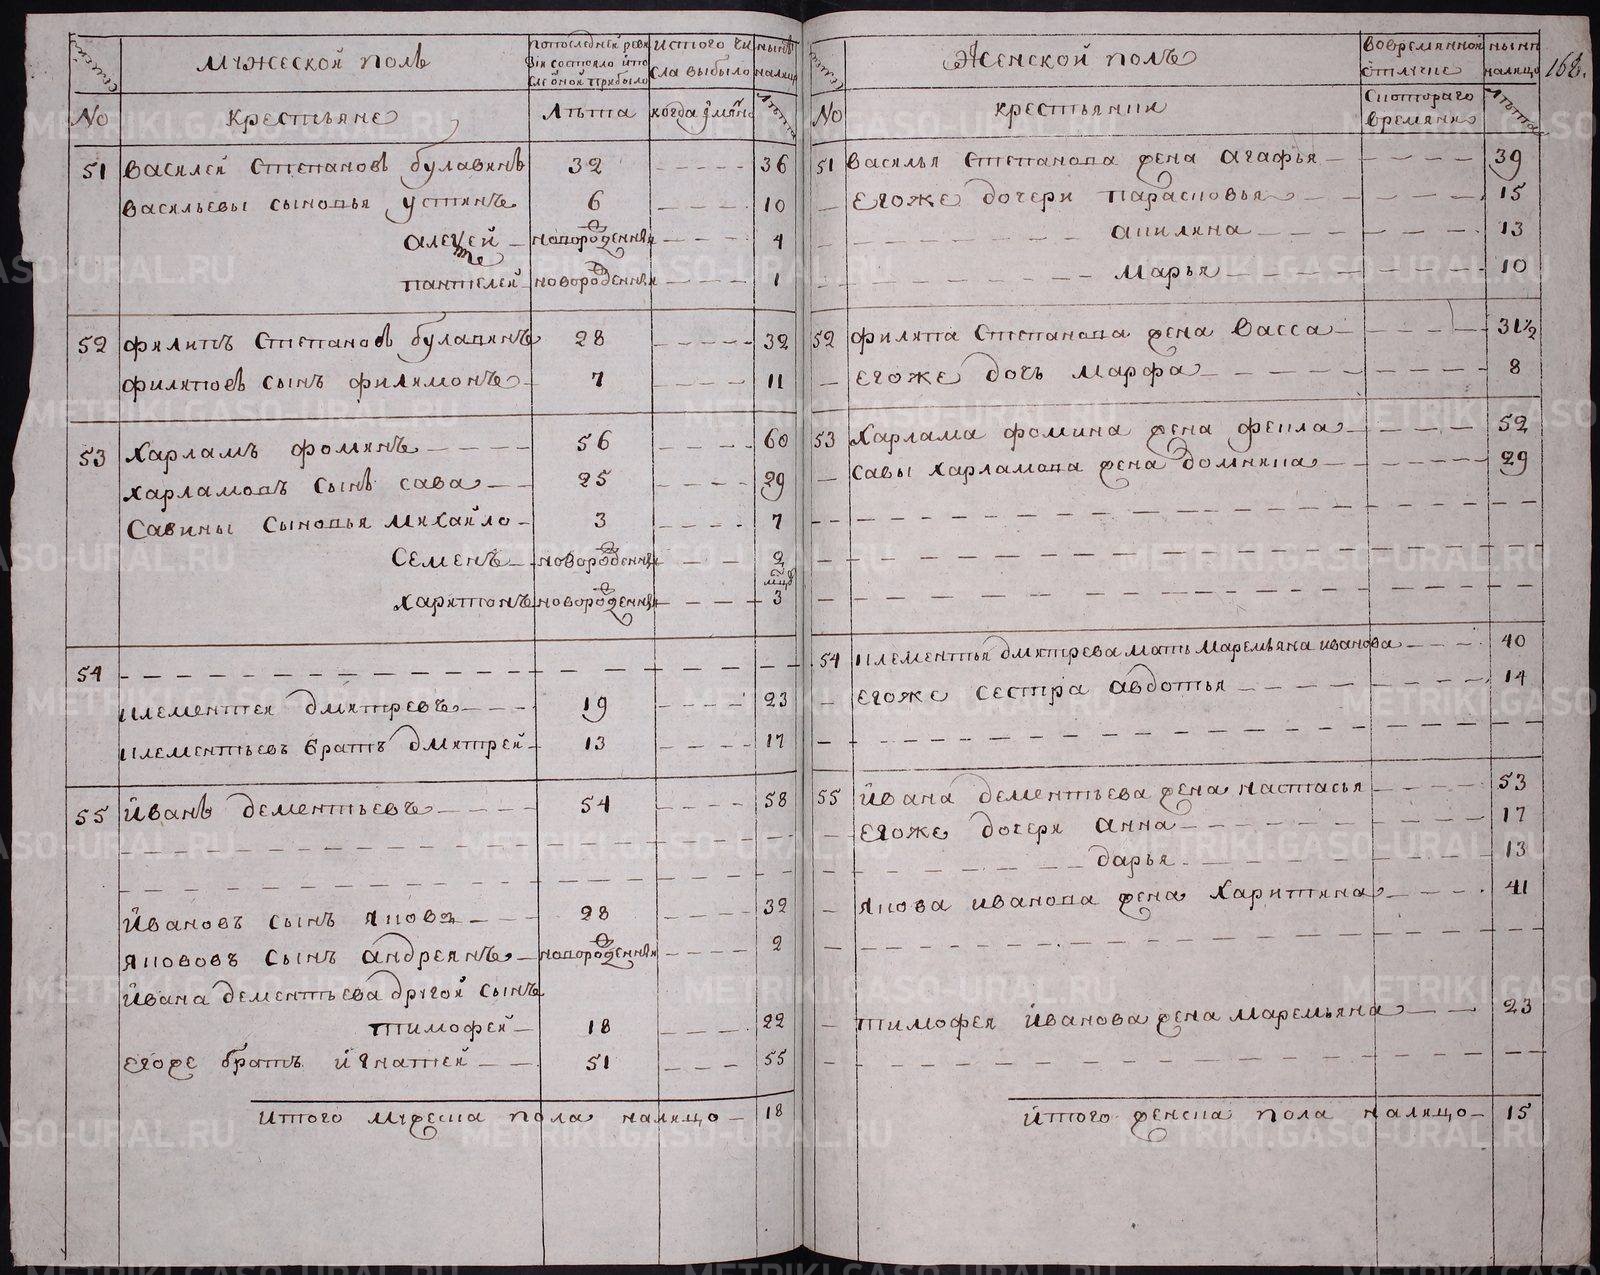 семей
Мужеской полъ
По последней реви
зiи состояло ипо
сле оной прибыло
изтого чи
сла выбыло
ныне
налицо
No
крестьяне
Лѣта
когда имянно
лѣта
51 Василей Степановъ Булавинъ 32 36
Васильевы сыновья Устинъ 6 10
Алексей новорожденныи 4
Пантелей новорожденныи 1
52 Филипъ Степановъ Булавинъ 28 32
Филиповъ сынъ Филимонъ 7 11
53 Харламъ Фоминъ 56 60
Харламовъ сынъ Сава 25 29
Савины сыновья Михайло 3 7
Семенъ новорожденныи 2
мцов
Харитонъ новорожденныи 3
54
Клементеи Дмитревъ 19 23
Клементьевъ братъ Дмитрей 13 17
55 Иванъ Дементьевъ 54 58
Ивановъ сынъ Яковъ 28 32
Яковов сынъ Андреянъ новорожденныи 2
Ивана Дементьева другой сынъ
Тимофей 18 22
Егоже братъ Игнатей 51 55
Итого мужеска пола налицо 18
семей
Женской полъ
Вовремянной
отлучке
ныне
налицо
168.
No
крестьянки
Скотораго
времяни
лѣта
51 Василья Степанова жена Агафья 39
Егоже дочери Парасковья 15
Акилина 13
Марья 10
52 Филипа Степанова жена Васса 31½
Егоже дочь Марфа 8
53 Харлама Фомина жена Фекла 52
Савы Харламова жена Домника 29
54 Клементья Дмитрева мать Маремьяна Иванова 40
Егоже сестра Авдотья 14
55 Ивана Дементьева жена Настасья 53
Егоже дочери Анна 17
Дарья 13
Якова Иванова жена Харитина 41
Тимофея Иванова жена Маремьяна 23
Итого женска пола налицо 15
METRIKI.GASO-URAL.RU